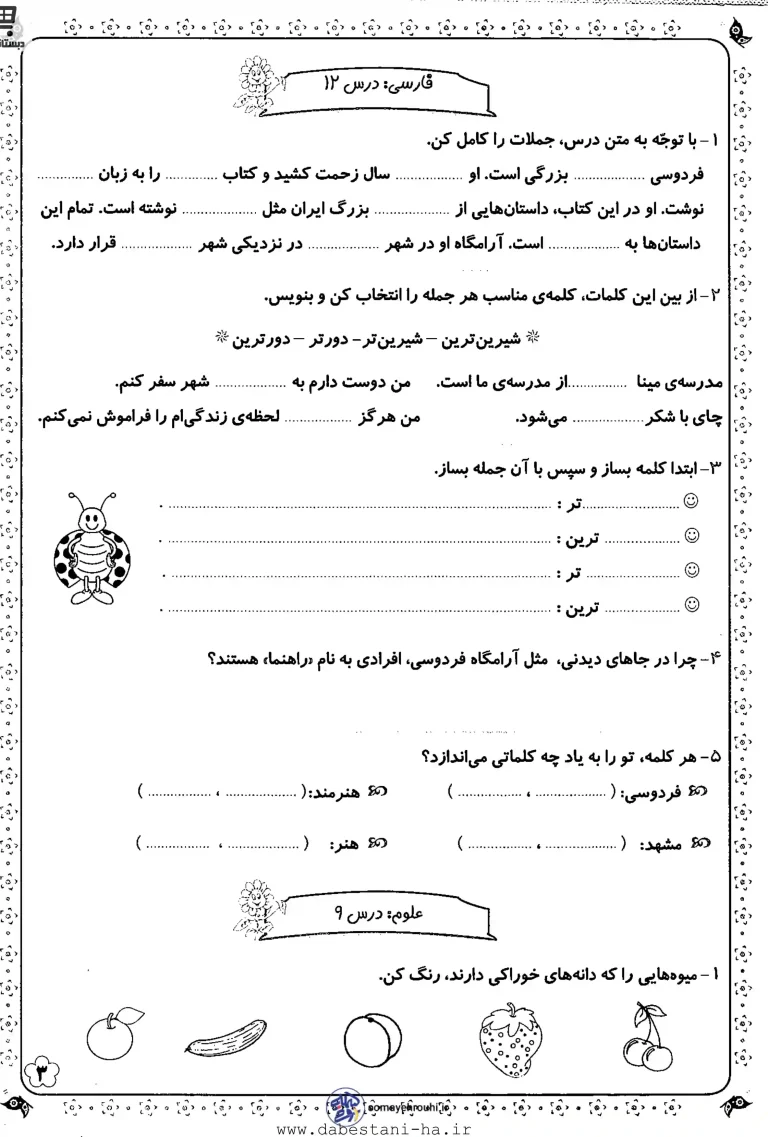 دبستانی
فارسی: درس ۱۲
۱- با توجّه به متن درس، جملات را کامل کن.
فردوسی .................... بزرگی است. او ................... سال زحمت کشید و کتاب ............... را به زبان ................
نوشت. او در این کتاب، داستان‌هایی از ..................... بزرگ ایران مثل ..................... نوشته است. تمام این
داستان‌ها به .................... است. آرامگاه او در شهر .................... در نزدیکی شهر .................... قرار دارد.
۲- از بین این کلمات، کلمه‌ی مناسب هر جمله را انتخاب کن و بنویس.
❊ شیرین‌ترین – شیرین‌تر- دورتر – دورترین ❊
مدرسه‌ی مینا ................از مدرسه‌ی ما است. من دوست دارم به .................... شهر سفر کنم.
چای با شکر.................... می‌شود. من هرگز ................... لحظه‌ی زندگی‌ام را فراموش نمی‌کنم.
۳- ابتدا کلمه بساز و سپس با آن جمله بساز.
☺ ...........................تر : ............................................................ .
☺ ..................... ترین : ............................................................ .
☺ .......................... تر : ............................................................ .
☺ ..................... ترین : ............................................................ .
۴- چرا در جاهای دیدنی، مثل آرامگاه فردوسی، افرادی به نام «راهنما» هستند؟
۵- هر کلمه، تو را به یاد چه کلماتی می‌اندازد؟
فردوسی: ( .................... ، .................. ) هنرمند:( .................... ، .................. )
مشهد: ( .................... ، .................. ) هنر: ( .................... ، .................. )
علوم: درس ۹
۱- میوه‌هایی را که دانه‌های خوراکی دارند، رنگ کن.
۳
somayehrouhi.ir
www.dabestani-ha.ir